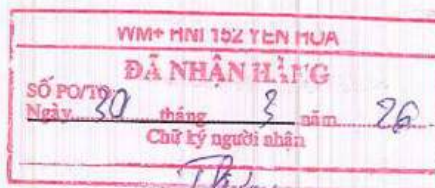 WM+ HNI 152 YEN HOA
ĐÃ NHẬN HÀNG
SỐ PO/TO
Ngày 30 tháng 3 năm 26
Chữ ký người nhận